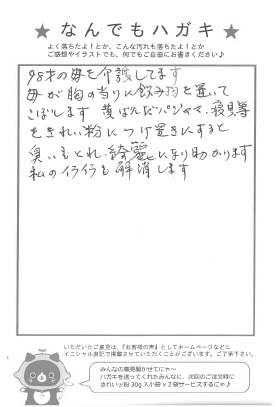 ★なんでもハガキ★
よく落ちたよ！とか、こんな汚れも落ちたよ！とか
ご感想やイラストでも、何でもご自由にお書きください♪
98才の母を介護してます
母が胸の当りに飲み物を置いて
こぼします 黄ばんだパジャマ、寝具等
をきれい粉につけ置きにすると
臭いもとれ、綺麗になり助かります
私のイライラも解消します
いただいたご意見は、『お客様の声』としてホームページなどに
イニシャル表記で掲載させていただくことがございます。ご了承下さい。
みんなの意見聞かせてにゃ〜
ハガキを送ってくれたみんなに、次回のご注文時に
きれいッ粉 30g 入小袋×2袋サービスするにゃ♪